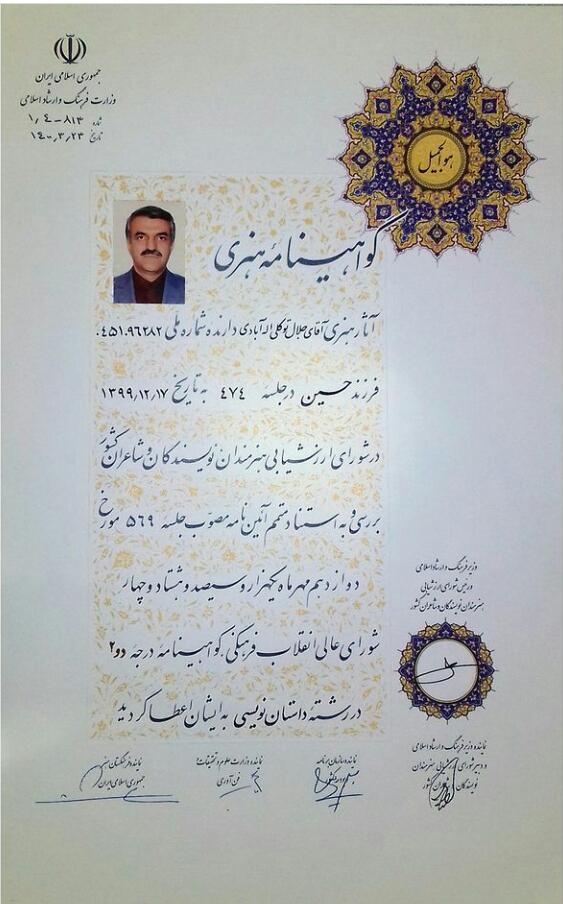 جمهوری اسلامی ایران
وزارت فرهنگ و ارشاد اسلامی
شماره ۱٫۴-۸۱۳
تاریخ ۱۴۰۰٫۳٫۲۳
هو الجمیل
گواهینامه هنری
آثار هنری آقای جلال توکلی اله آبادی دارنده شماره ملی ۰۴۵۱۰۹۶۲۸۲
فرزند حسین در جلسه ۴۷۴ به تاریخ ۱۳۹۹٫۱۲٫۱۷
در شورای ارزشیابی هنرمندان نویسندگان و شاعران کشور
بررسی و به استناد متمم آئین نامه مصوب جلسه ۵۶۹ مورخ
دوازدهم مهرماه یکهزار و سیصد و هشتاد و چهار
شورای عالی انقلاب فرهنگی گواهینامه درجه دو۲
در رشته داستان نویسی به ایشان اعطا گردید
وزیر فرهنگ و ارشاد اسلامی
و رئیس شورای ارزشیابی
هنرمندان نویسندگان و شاعران کشور
نماینده وزیر فرهنگ و ارشاد اسلامی
و دبیر شورای ارزشیابی هنرمندان
نویسندگان و شاعران کشور
نماینده سازمان برنامه
و بودجه کشور
نماینده وزارت علوم و تحقیقات
و فن آوری
نماینده فرهنگستان هنر
جمهوری اسلامی ایران